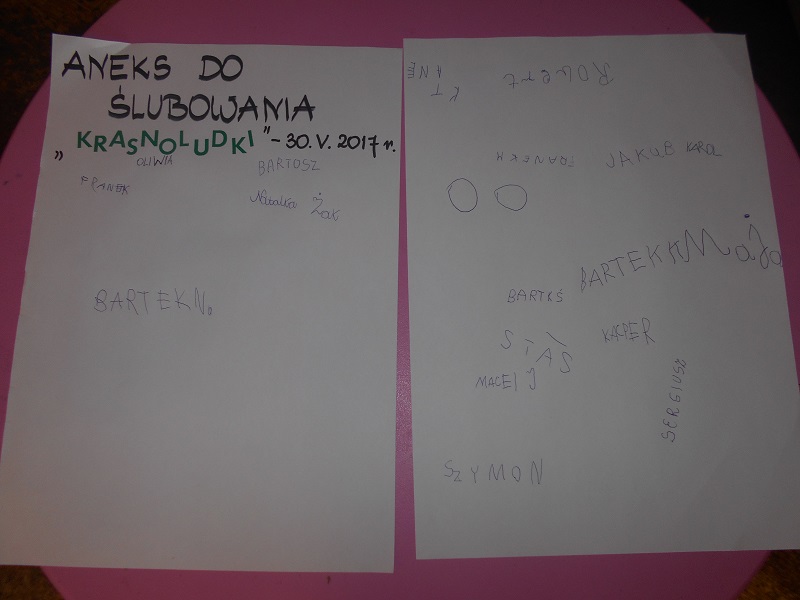 ANEKS DO
ŚLUBOWANIA
„KRASNOLUDKI" - 30.V.2017 r.
OLIWIA
BARTOSZ
FRANEK
Natalka Żak
BARTEK N.
Robert
FRANEK H
JAKUB KAROL
BARTEK K Maja
BARTKŚ
STAŚ
KACPER
MACEIJ
SERGIUSZ
SZYMON